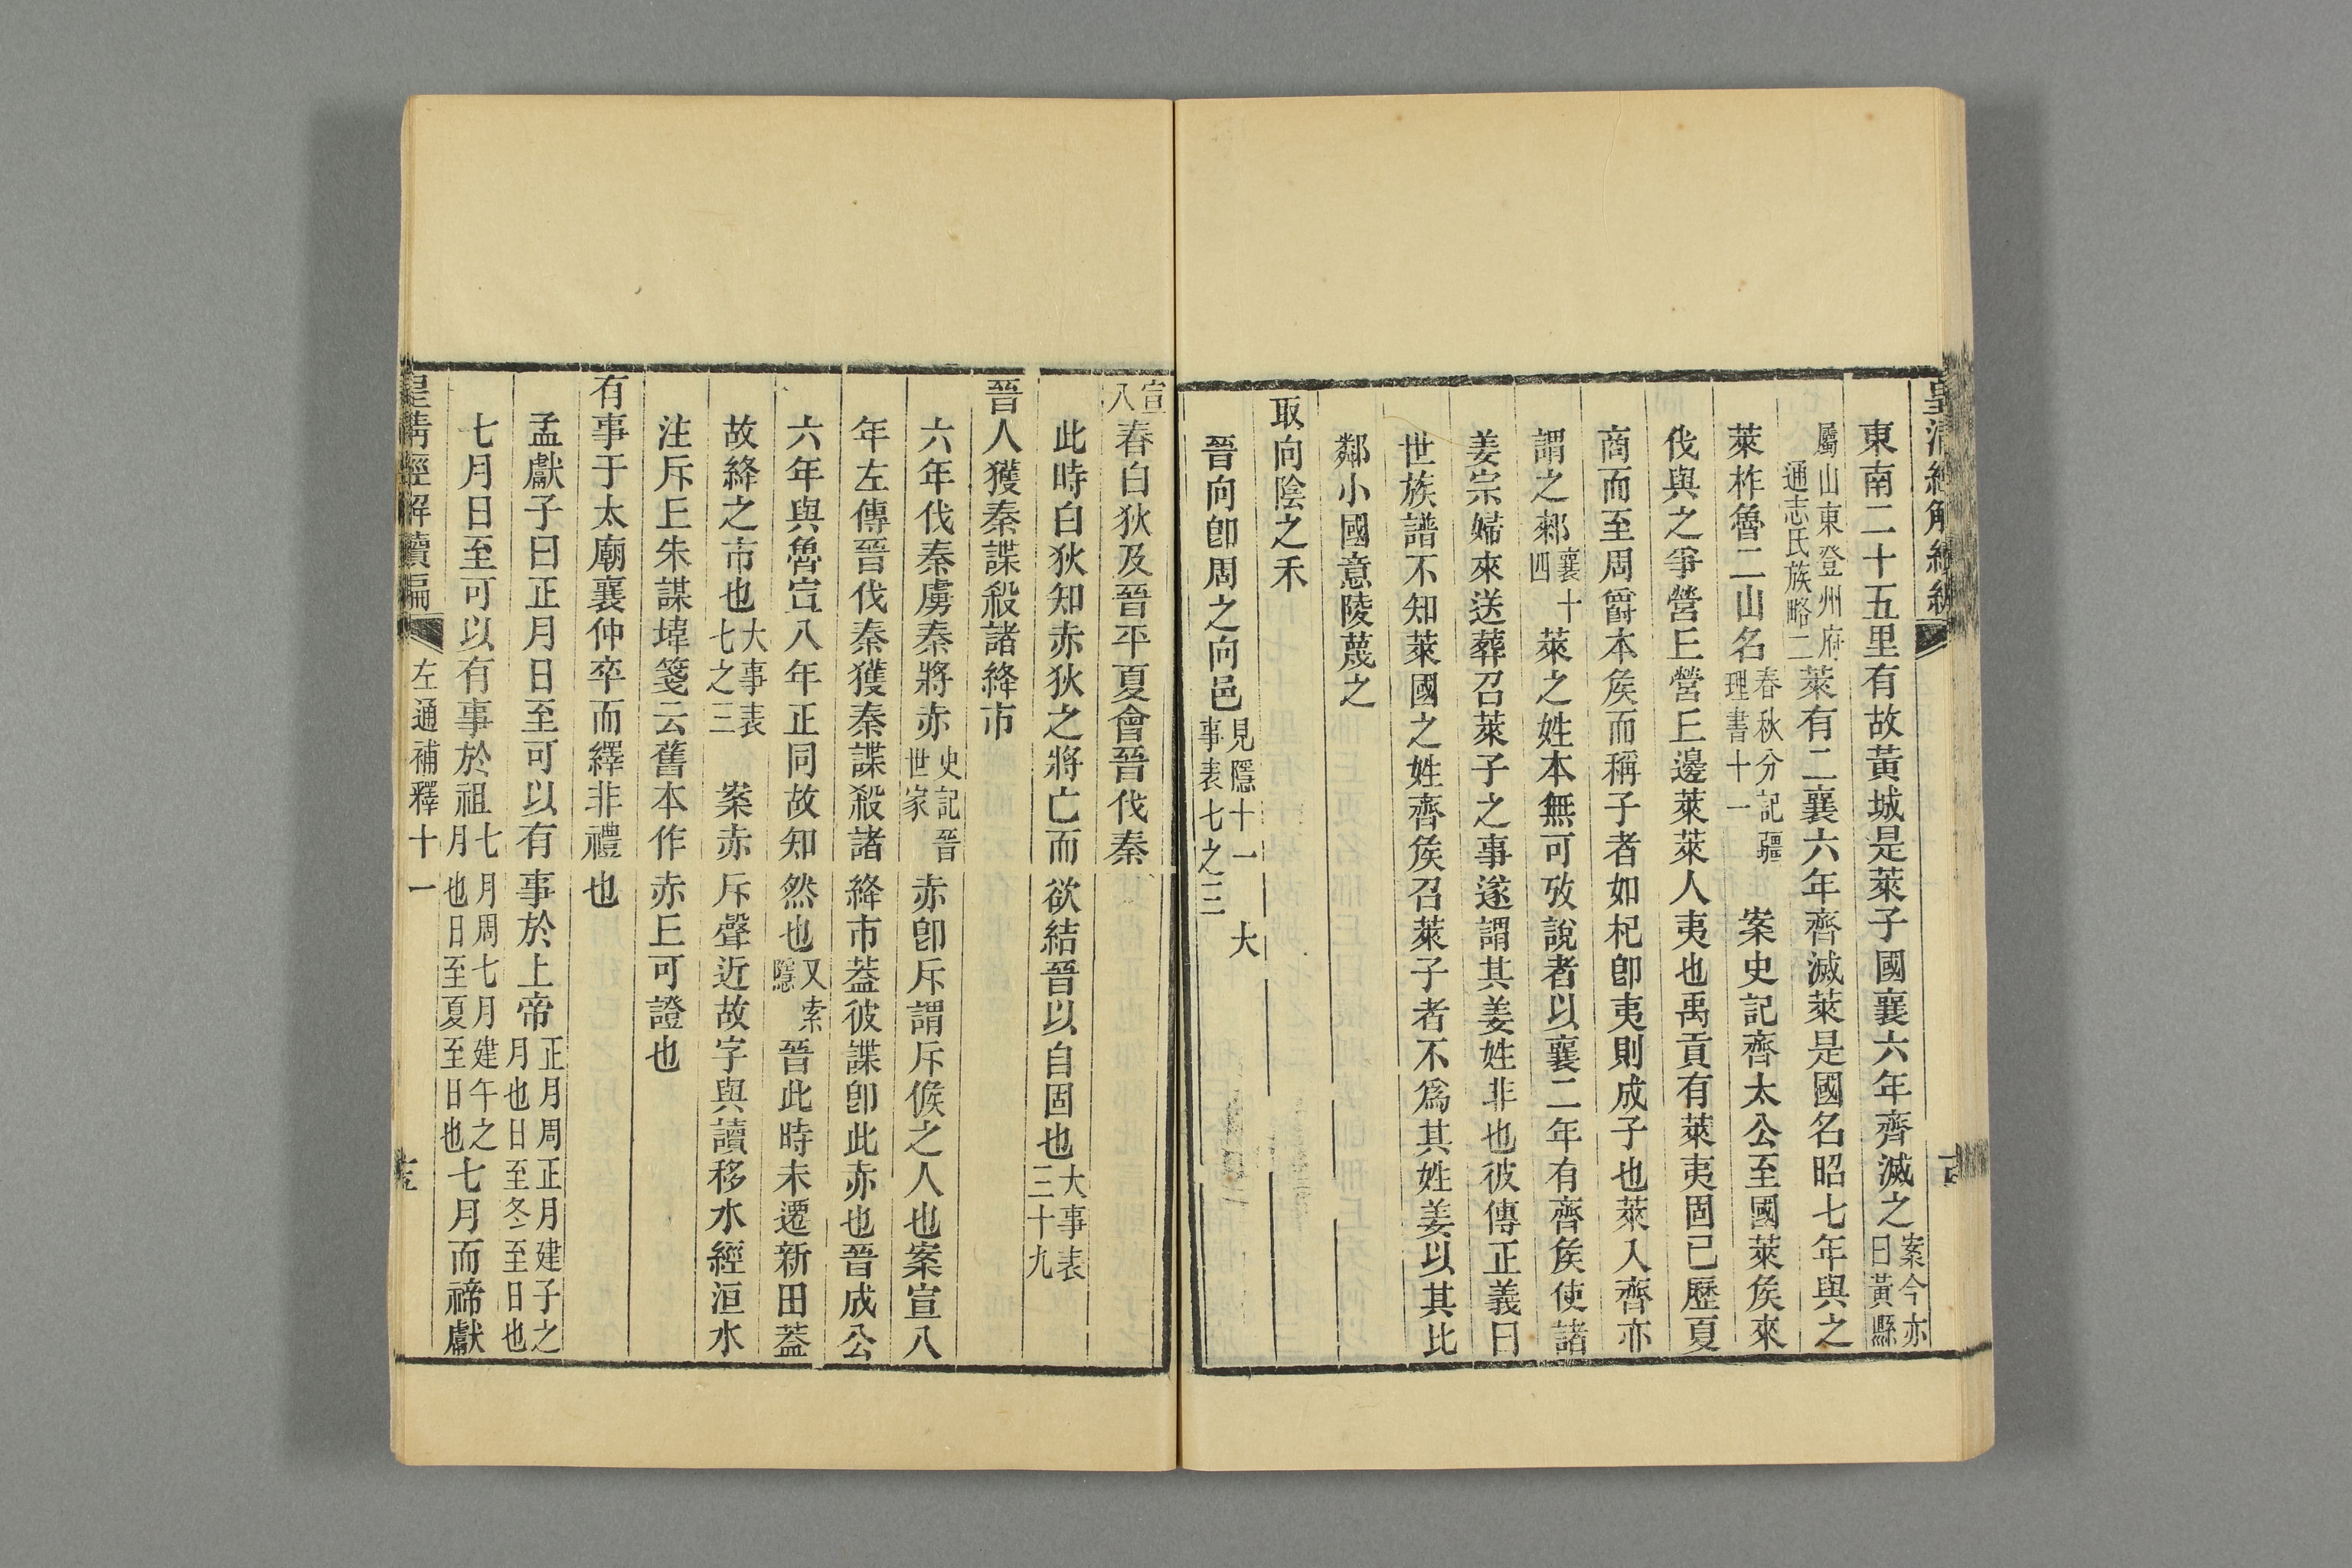 東南二十五里有故黃城是萊子國襄六年齊滅之案今亦曰黃縣
屬山東登州府通志氏族略二萊有二襄六年齊滅萊是國名昭七年與之
萊柞魯二山名春秋分記疆理書十一案史記齊太公至國萊矦來
伐與之爭營丘營丘邊萊萊人夷也禹貢有萊夷固已歷夏
商而至周爵本矦而稱子者如杞卽夷則成子也萊入齊亦
謂之郲襄十四萊之姓本無可攷說者以襄二年有齊矦使諸
姜宗婦來送葬召萊子之事遂謂其姜姓非也彼傳正義曰
世族譜不知萊國之姓齊矦召萊子者不爲其姓姜以其比
鄰小國意陵蔑之
取向陰之禾
晉向卽周之向邑見隱十一大事表七之三
宣八春白狄及晉平夏會晉伐秦
此時白狄知赤狄之將亡而欲結晉以自固也大事表三十九
晉人獲秦諜殺諸絳市
六年伐秦虜秦將赤史記晉世家赤卽斥謂斥候之人也案宣八
年左傳晉伐秦獲秦諜殺諸絳市蓋彼諜卽此赤也晉成公
六年與魯宣八年正同故知然也又索隱晉此時未遷新田蓋
故絳之市也大事表七之三案赤斥聲近故字與讀移水經洹水
注斥丘朱謀㙔箋云舊本作赤丘可證也
有事于太廟襄仲卒而繹非禮也
孟獻子曰正月日至可以有事於上帝正月周正月建子之月也日至冬至日也
七月日至可以有事於祖七月周七月建午之月也日至夏至日也七月而禘獻
皇清經解續編
左通補釋十一